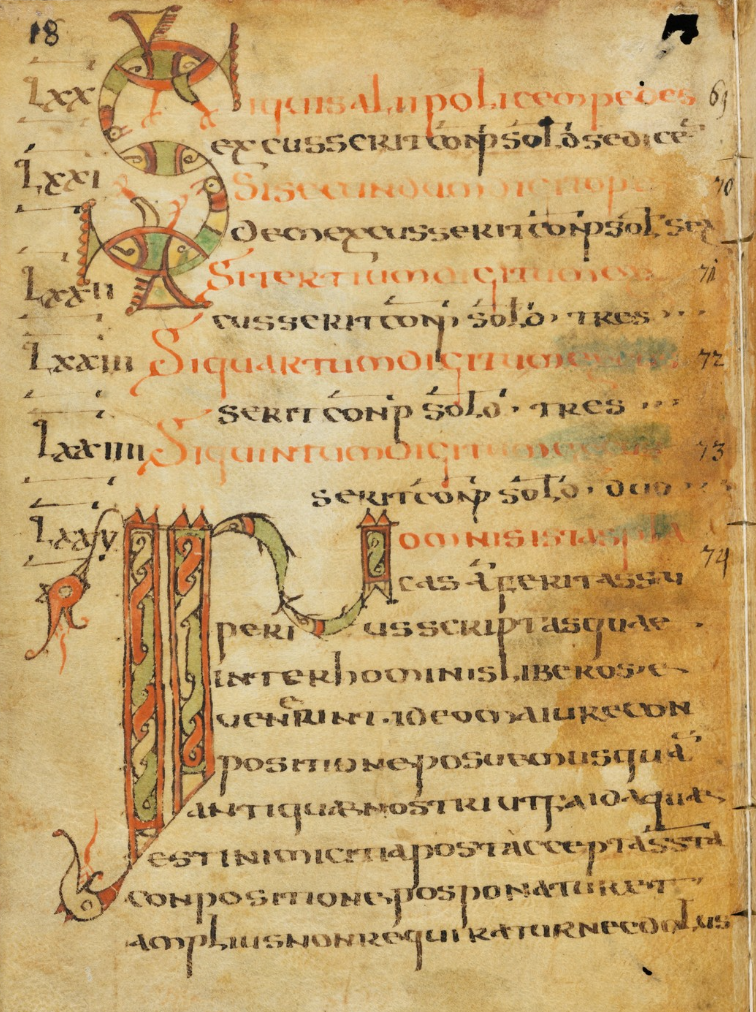 18
LXX Siquis alii police(m) pedes 69
excusserit conp sol˙d sedice
LXXI Si secundum digito pe 70
dem excusserit conp sol˙ sex
LXXII Si tertium digitum ex 71
cusserit conp solđ tres
LXXIII Si quartum digitum ex 72
serit conp solđ tres
LXXIIII Si quintum digitum 73
serit conp solđ duo
LXXV In omnis istas pla 74
cas aferitas su
peri us scriptas quae
inter hominis liberos e
venerint ideo maiure con
positione posuemus qua
antiquae nostri ut faida quae
est inimicitia post accepta ssta
conpositione posponatur et
amplius non requiratur nec dolus